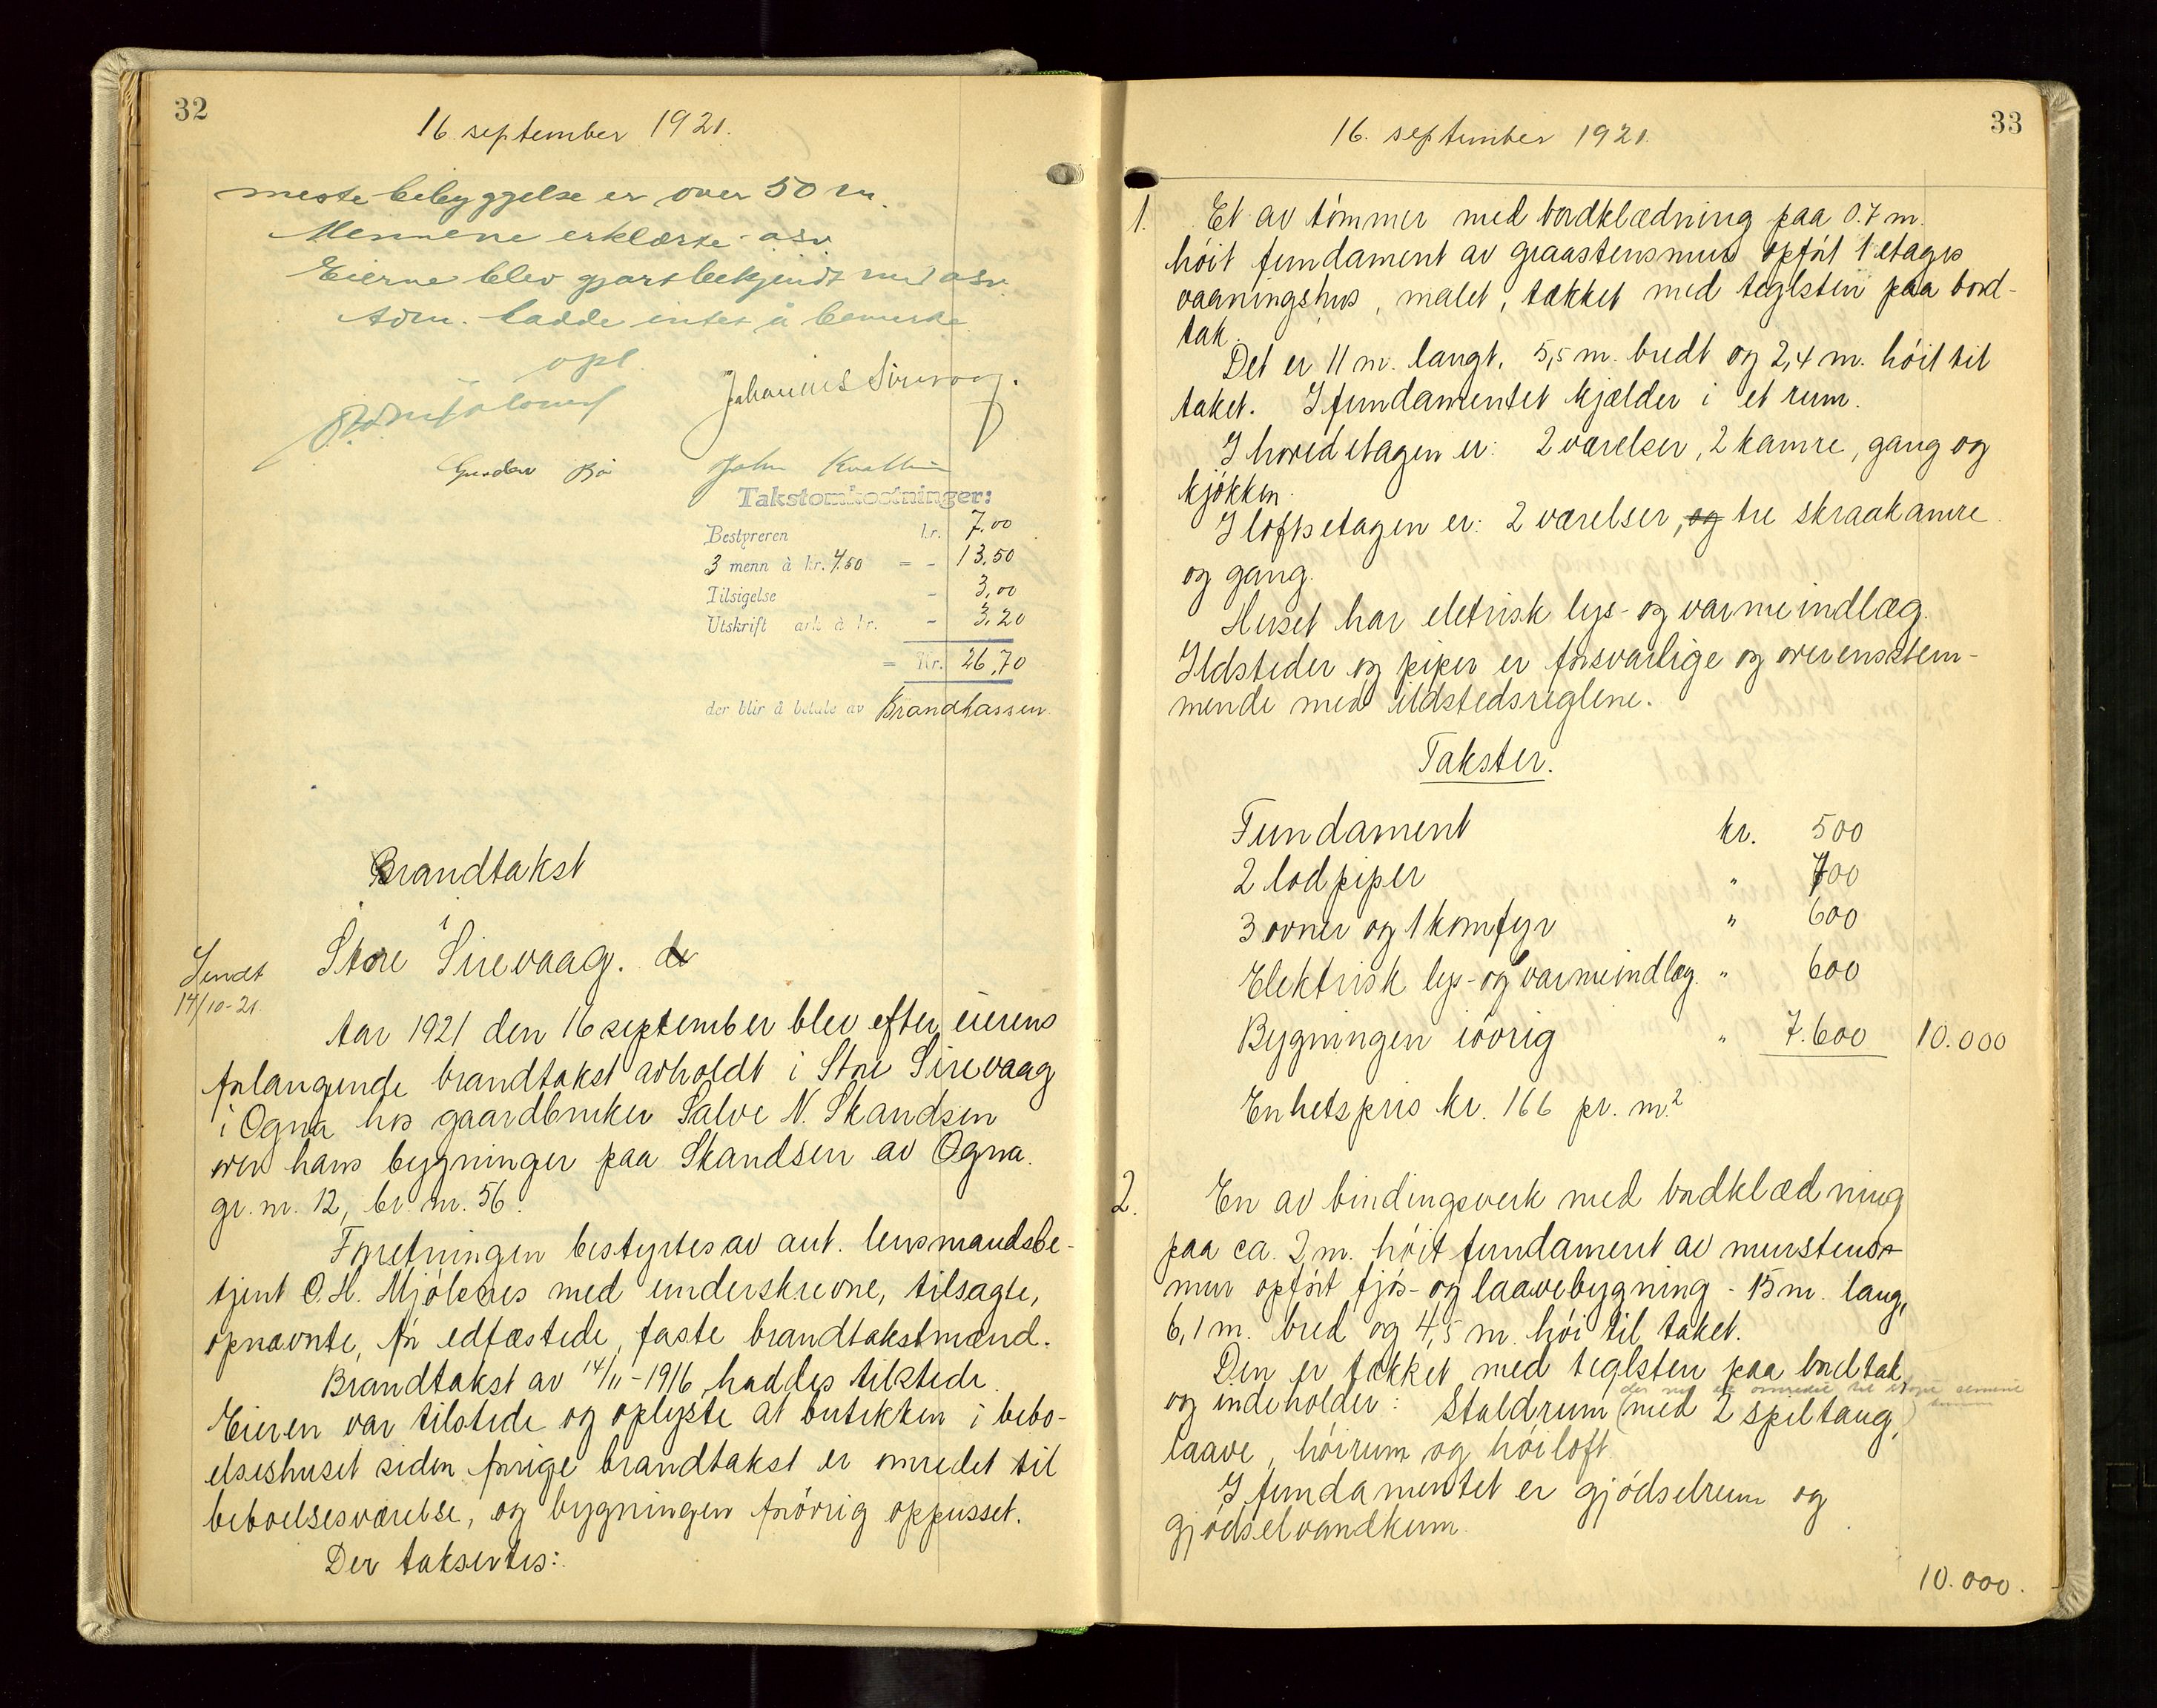 32
16 september 1921.
meste bebyggelse er over 50 m.
Mennene erklærte osv.
Eierne blev gjort bekjendt med osv
Adm. hadde intet å bemerke.
opl.
Johannes Sirevaag.
Gunder Bø
John
Takstomkostninger:
Bestyreren kr. 7,00
3 menn à kr. 4.50 = - 13,50
Tilsigelse - 3,00
Utskrift ark à kr. - 3,20
= Kr. 26,70
der blir å betale av Brandkassen
Brandtakst
i
Store Sirevaag. de
Sendt
14/10-21.
Aar 1921 den 16 september blev efter eierens
forlangende brandtakst avholdt i Store Sirevaag
i Ogna hos gaardbruker Salve N. Skandsen
over hans bygninger paa Skandsen av Ogna.
gr. nr. 12, br. nr. 56.
Forretningen bestyrtes av aut. lensmandsbe-
tjent O. H. Mjølsnes med underskrevne, tilsagte,
opnævnte, för edfæstede, faste brandtakstmænd.
Brandtakst av 14/11-1916 haddes tilstede.
Eieren var tilstede og oplyste at butikken i bebo-
elseshuset siden forrige brandtakst er omredet til
beboelsesværelse, og bygningen forøvrig oppusset.
Der taksertes:
33
16. september 1921.
1. Et av tømmer med bordklædning paa 0.7 m.
høit fundament av graastensmur opført 1 etages
vaaningshus, malet, tækket med teglsten paa bord-
tak.
Det er 11 m. langt, 5,5 m. bredt og 2,4 m. høit til
taket. I fundamentet kjælder i et rum.
I hovedetagen er: 2 værelser, 2 kamre, gang og
kjøkken.
I loftsetagen er: 2 værelser, og tre skraakamre
og gang.
Huset har eletrisk lys- og varmeindlæg.
Ildsteder og piper er forsvarlige og overensstem-
mende med ildstedsreglene.
Takster.
Fundament kr. 500
2 lodpiper " 700
3 ovner og 1 komfyr " 600
Elektrisk lys- og varmeindlæg. " 600
Bygningen iøvrig " 7.600 10.000
Enhetspris kr. 166 pr. m.²
2. En av bindingsverk med bordklædning
paa ca. 2 m. høit fundament av murstens-
mur opført fjøs- og laavebygning - 15 m. lang,
6,1 m. bred og 4,5 m. høi til taket.
Den er tækket med teglsten paa bordtak,
og indeholder: Staldrum (med 2 spiltaug,)
laave, høirum og høiloft.
I fundamentet er gjødselrum og
gjødselvandkum.
10.000.